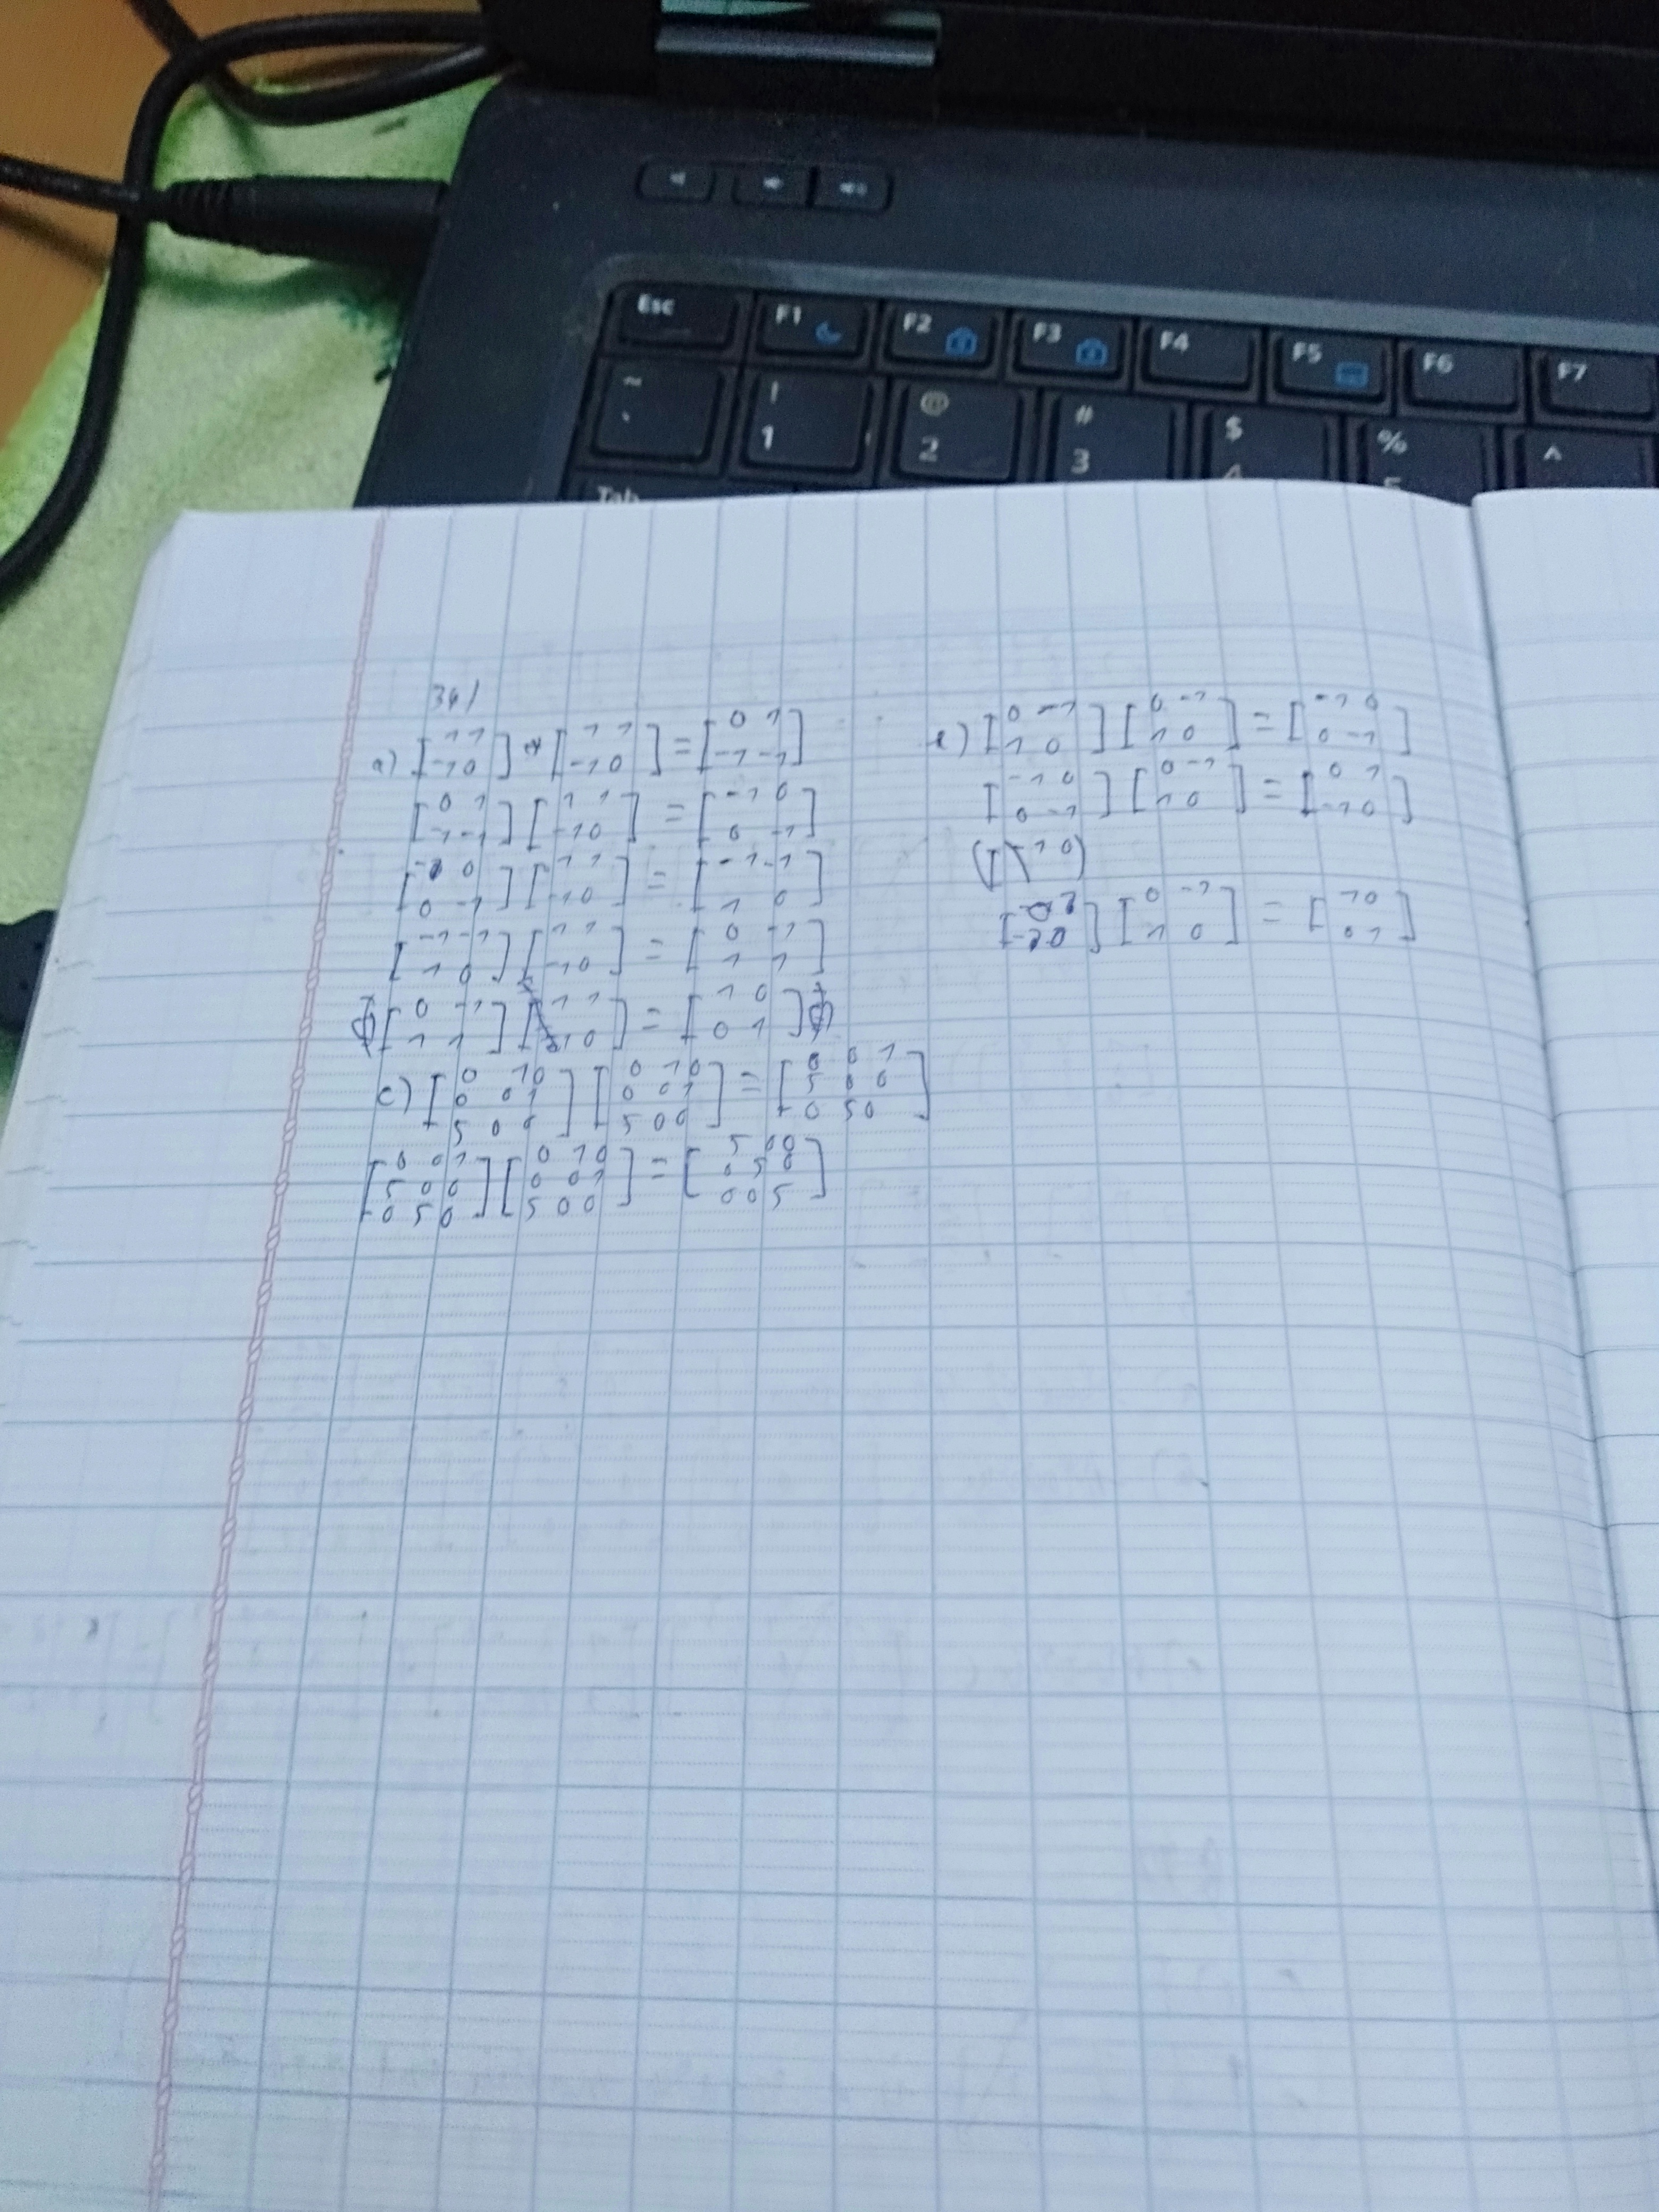 Esc F1 F2 F3 F4 F5 F6 F7
~ ` ! 1 @ 2 # 3 $ 4 % 5 ^
Tab
36/
a) [ 1 1
-1 0 ] [ 1 1
-1 0 ] = [ 0 1
-1 -1 ]
[ 0 1
-1 -1 ] [ 1 1
-1 0 ] = [ -1 0
0 -1 ]
[ -1 0
0 -1 ] [ 1 1
-1 0 ] = [ -1 -1
1 0 ]
[ -1 -1
1 0 ] [ 1 1
-1 0 ] = [ 0 -1
1 1 ]
[ 0 -1
1 1 ] [ 1 1
-1 0 ] = [ 1 0
0 1 ]
c) [ 0 1 0
0 0 1
5 0 0 ] [ 0 1 0
0 0 1
5 0 0 ] = [ 0 0 1
5 0 0
0 5 0 ]
[ 0 0 1
5 0 0
0 5 0 ] [ 0 1 0
0 0 1
5 0 0 ] = [ 5 0 0
0 5 0
0 0 5 ]
[ 0 -1
1 0 ] [ 0 -1
1 0 ] = [ -1 0
0 -1 ]
[ -1 0
0 -1 ] [ 0 -1
1 0 ] = [ 0 1
-1 0 ]
[ 0 -1
1 0 ] = [ 1 0
0 1 ]